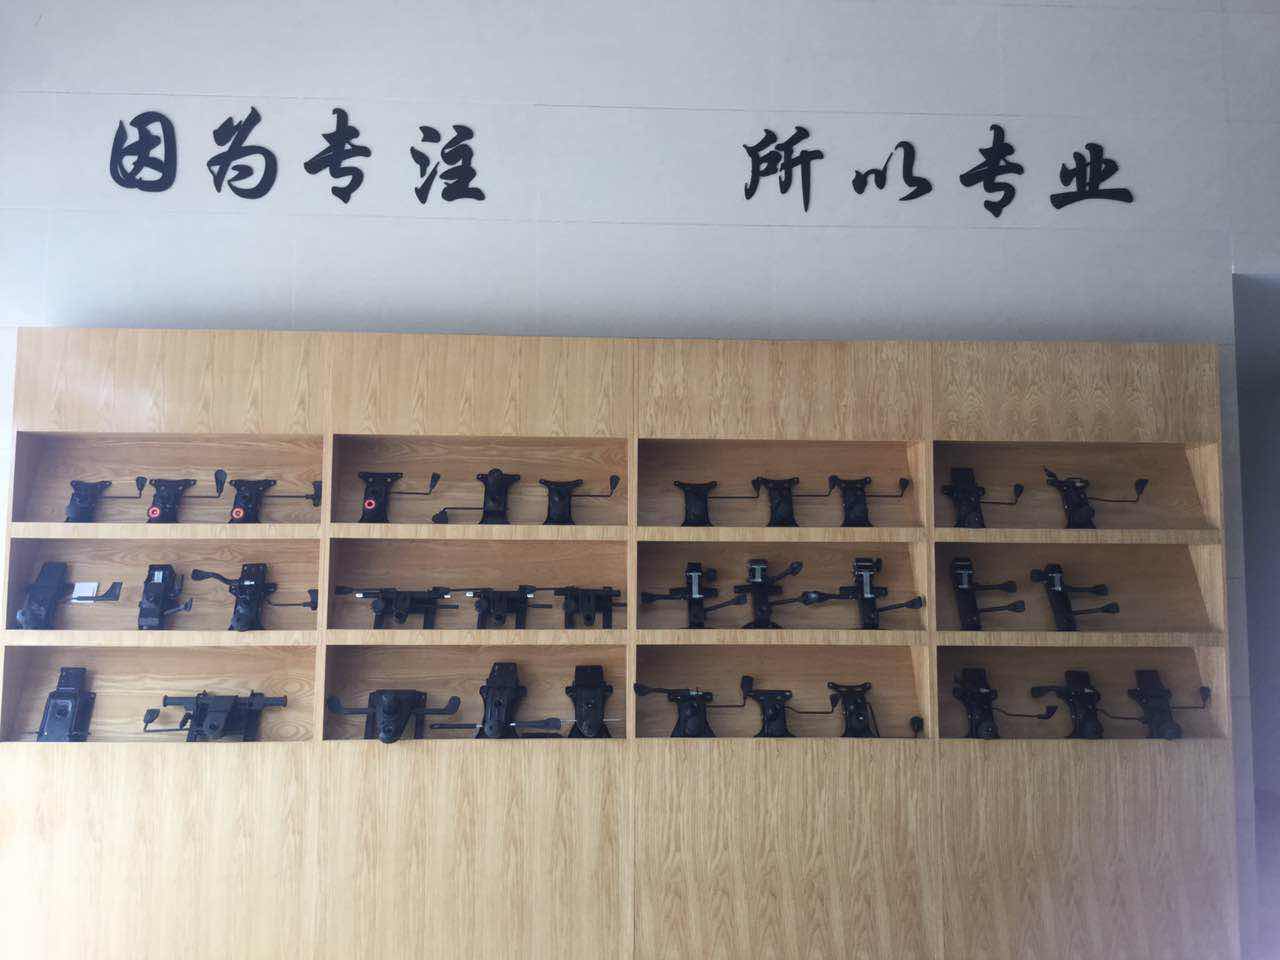 因为专注 所以专业